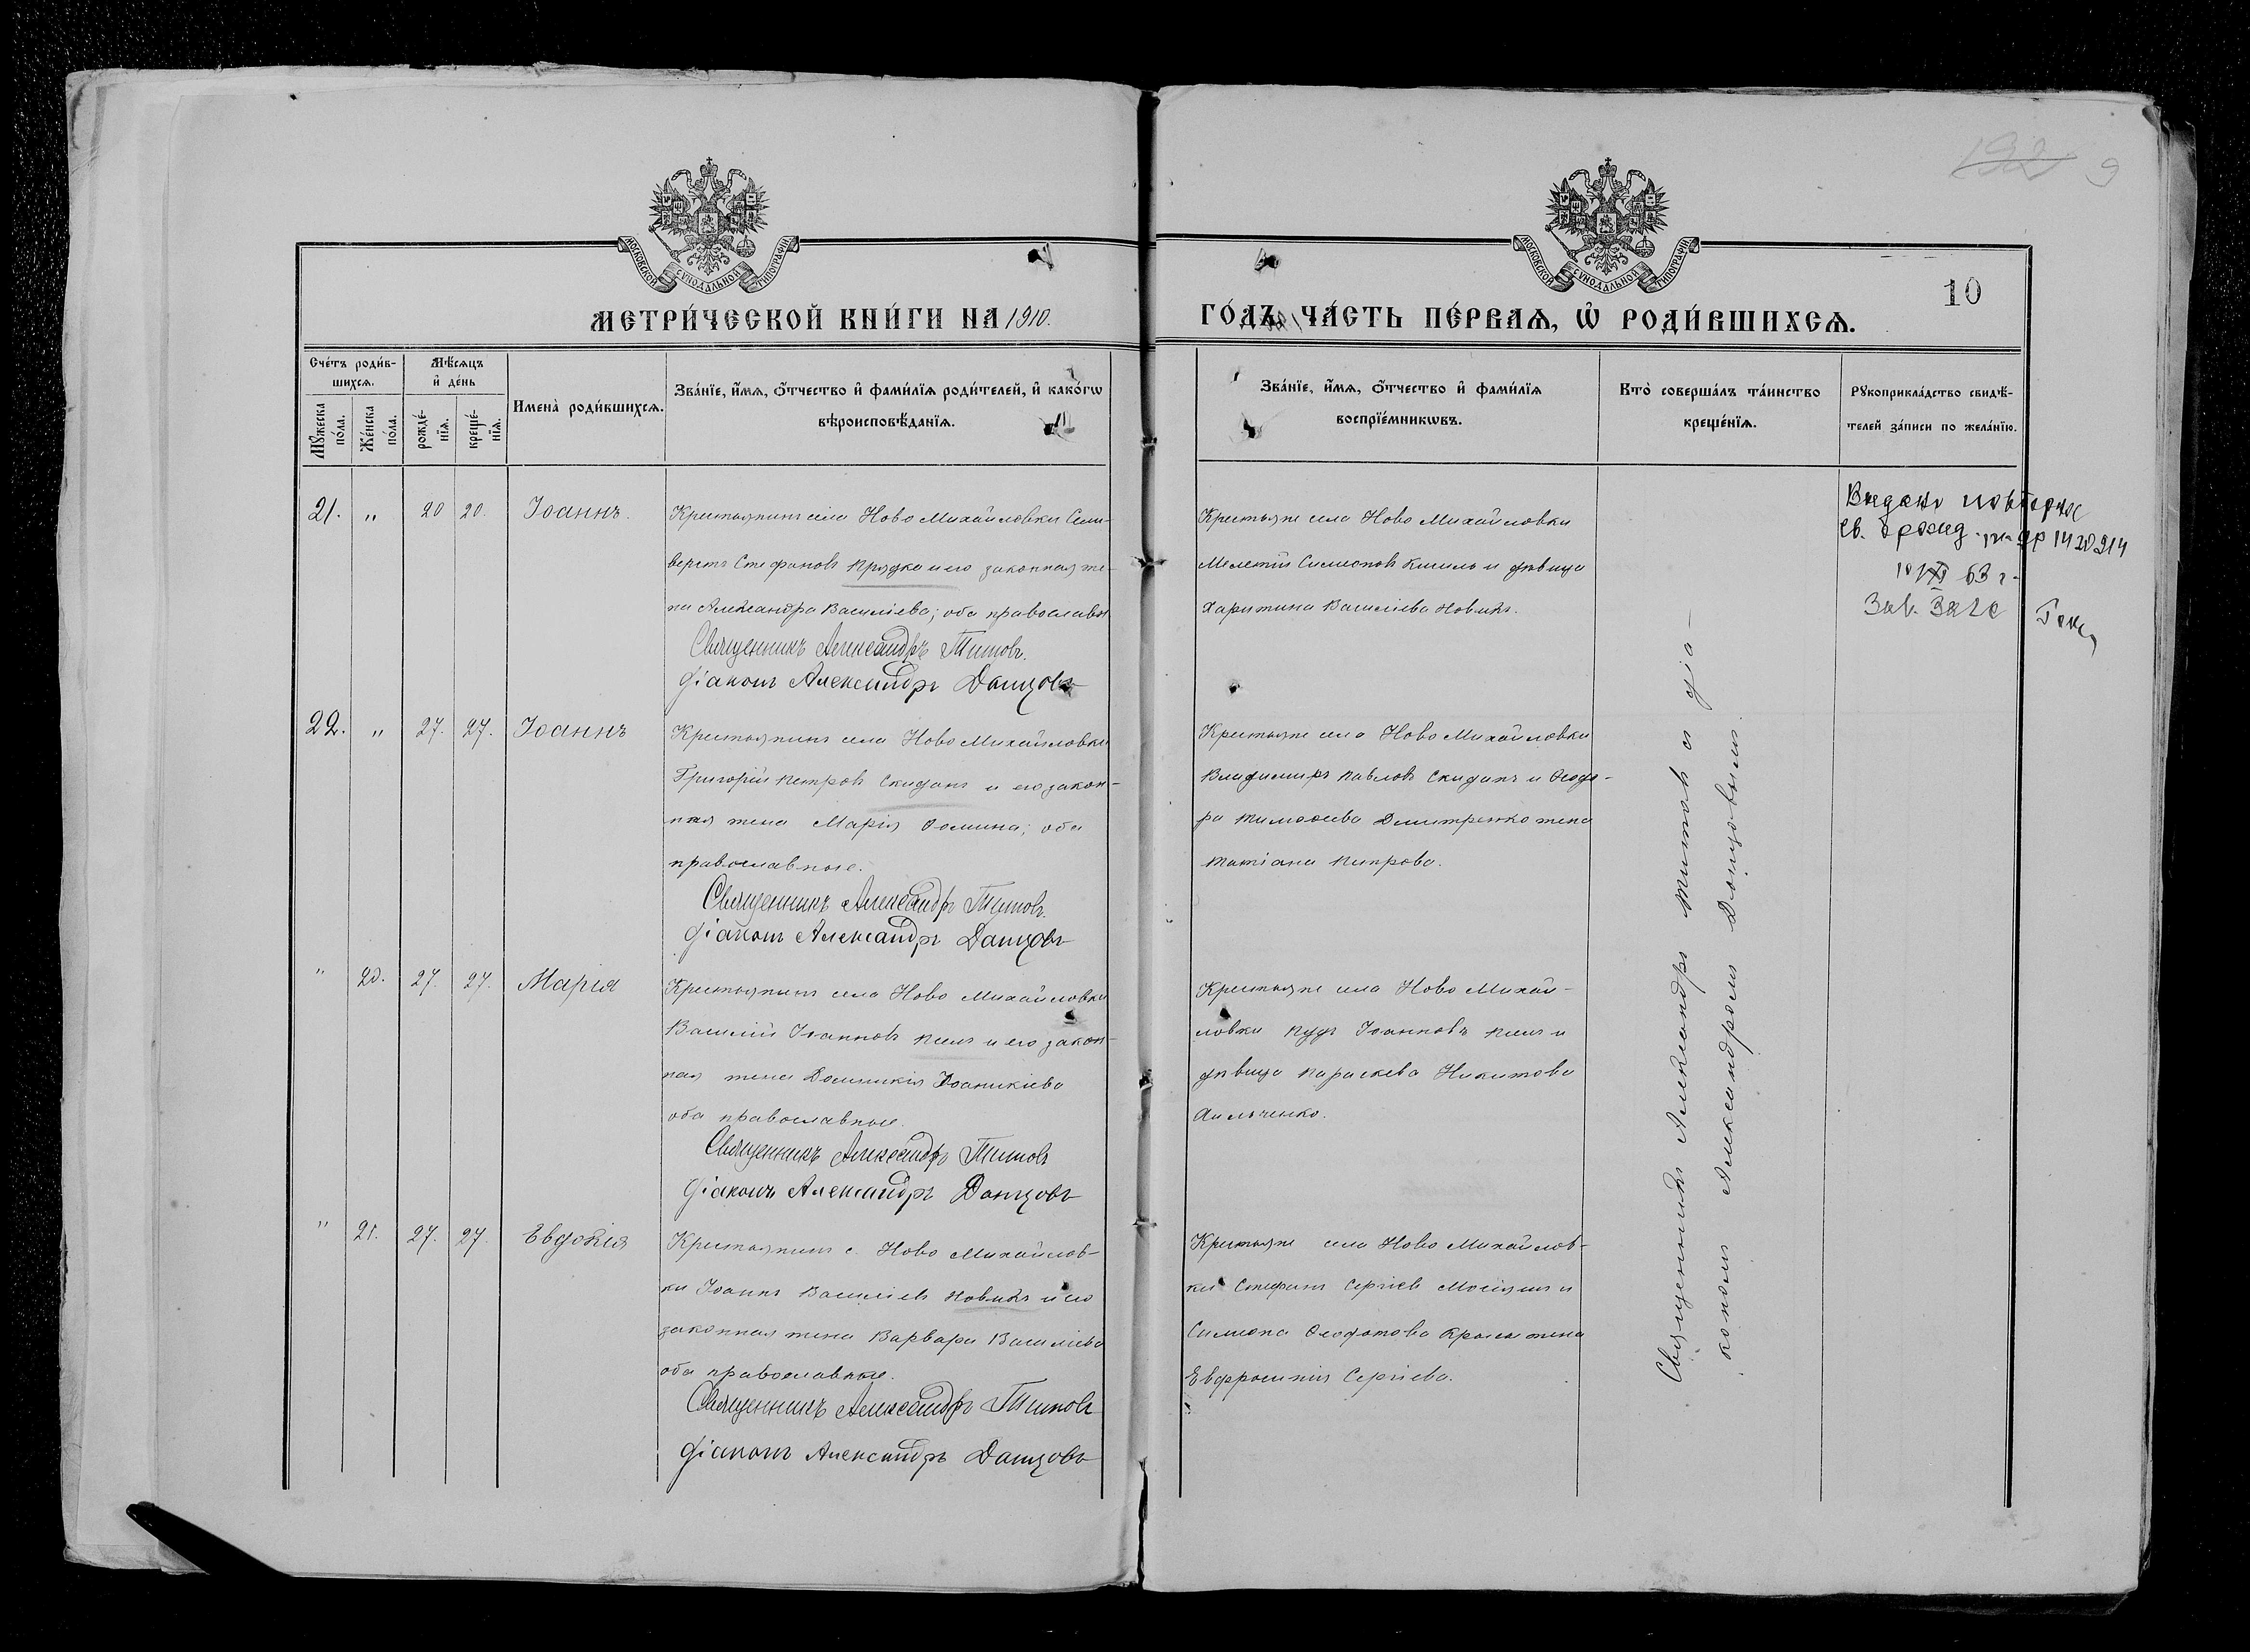 9
МОСКОВСКОЙ СѴНОДАЛЬНОЙ ТИПОГРАФІИ
МОСКОВСКОЙ СѴНОДАЛЬНОЙ ТИПОГРАФІИ
10
МЕТРИ́ЧЕСКОЙ КНИ́ГИ НА 1910.
ГО́ДЪ, ЧА́СТЬ ПЕ́РВАѦ, Ѡ҆ РОДИ́ВШИХСѦ.
Сче́тъ роди́в-
шихсѧ.
Мѣ́сѧцъ
и҆ де́нь
Мꙋ́жеска
по́ла.
Же́нска
по́ла.
рожде́-
нїѧ.
креще́-
нїѧ.
Имена̀ роди́вшихсѧ.
Зва́нїе, и҆́мѧ, ѻ҆́тчество и҆ фами́лїѧ роди́телей, и҆ како́гѡ
вѣроисповѣ́данїѧ.
Зва́нїе, и҆́мѧ, ѻ҆́тчество и҆ фами́лїѧ
воспрїе́мникѡвъ.
Кто̀ соверша́лъ та́инство
креще́нїѧ.
Рꙋкоприкла́дство свидѣ́-
телей за́писи по жела́нїю.
21. " 20 20. Іоаннъ.
Крестьянинъ села Ново Михайловки Сели-
верстъ Стефановъ Прядка и его законная же-
на Александра Василіева; оба православн
Священникъ Александръ Титовъ.
Діаконъ Александръ Донцовъ
Крестьяне села Ново Михайловки
Мелетій Симеоновъ Кисиль и дѣвица
Харитина Василіева Новикъ.
Выдано повторное
св. о рожд.
63 г.
Зав. Загс
22. " 27. 27. Іоаннъ
Крестьянинъ села Ново Михайловки
Григорій Петровъ Скиданъ и его закон-
ная жена Марія Ѳомина; оба
православные.
Священникъ Александръ Титовъ.
Діаконъ Александръ Донцовъ
Крестьяне села Ново Михайловки
Владимиръ Павловъ Скиданъ и Ѳеодо-
ра Тимоѳеева Дмитренко жена
Татіана Петрова.
" 20. 27. 27. Марія
Крестьянинъ села Ново Михайловки
Василій Іоанновъ Пель и его закон-
ная жена Домникія Іоаникіева
оба православные.
Священникъ Александръ Титовъ
Діаконъ Александръ Донцовъ
Крестьяне села Ново Михай-
ловки Пудъ Іоанновъ Пель и
дѣвица Параскева Никитова
" 21. 27. 27. Евдокія
Крестьянинъ с. Ново Михайлов-
ки Іоаннъ Василіевъ Новикъ и его
законная жена Варвара Василіева
оба православные.
Священникъ Александръ Титовъ
Діаконъ Александръ Донцовъ
Крестьяне села Ново Михайлов-
ки Стефанъ Сергіевъ и
Симеона Ѳеодотова жена
Евфросинія Сергіева.
Священникъ Александръ Титовъ съ діа-
кономъ Александромъ Донцовымъ.